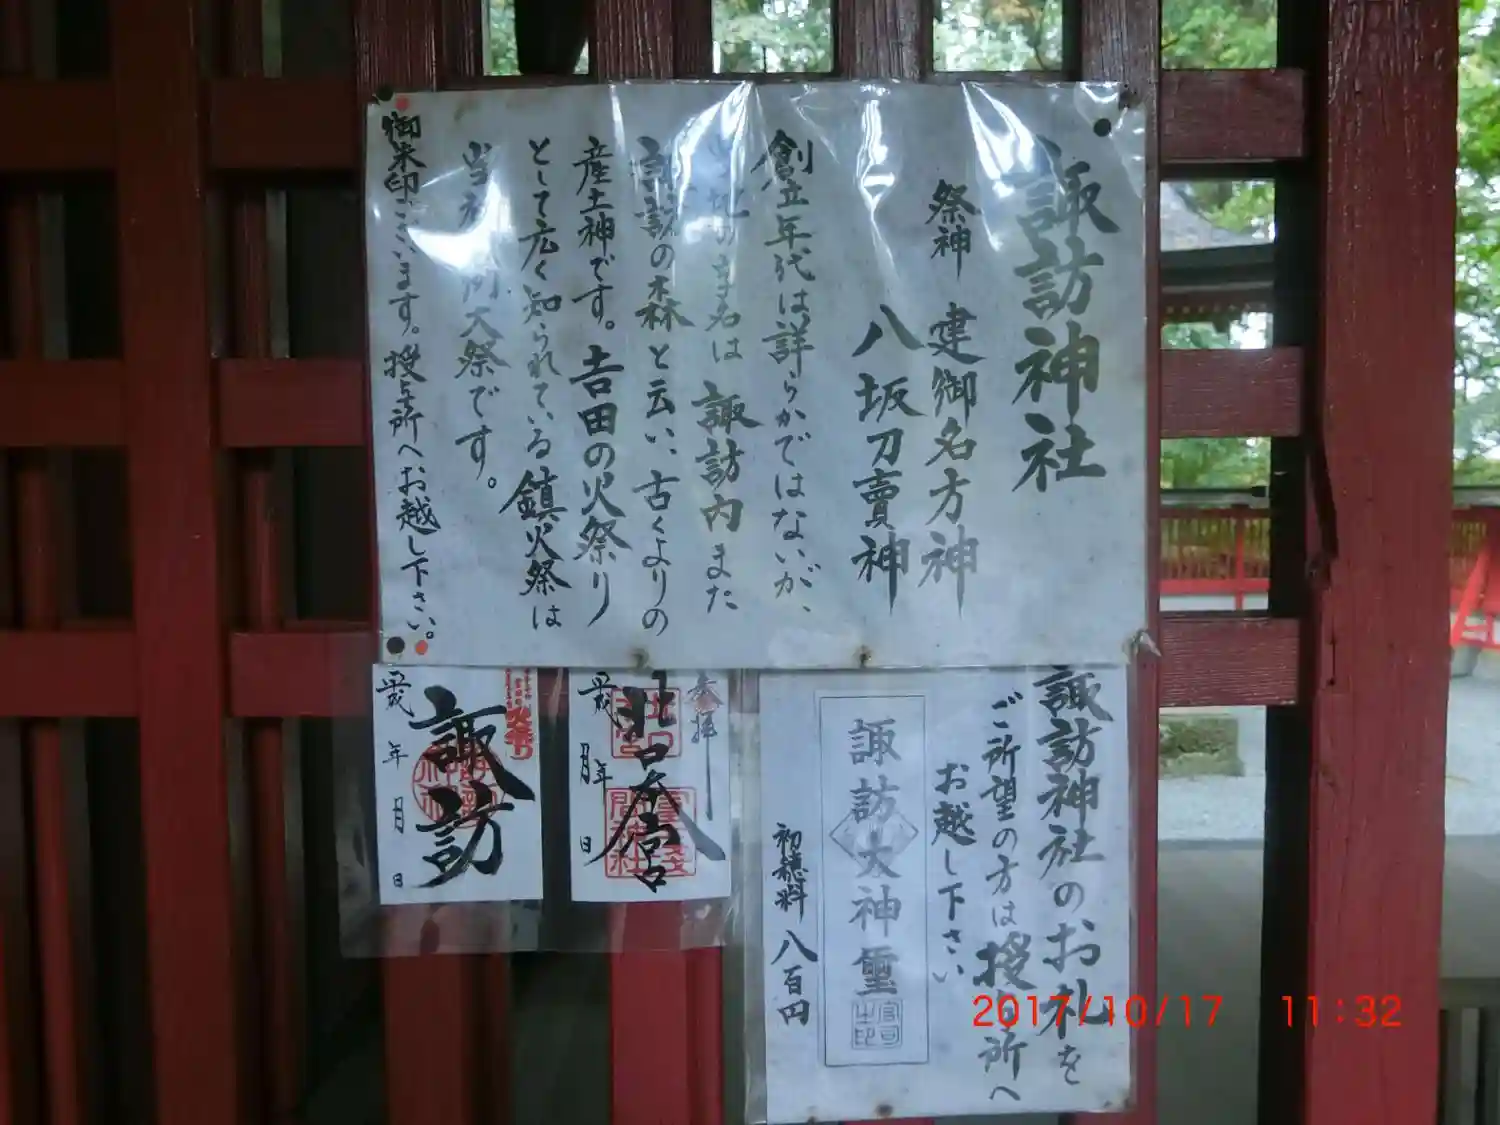 諏訪神社
祭神 建御名方神
八坂刀賣神
創立年代は詳らかではないが、
当地の字名は 諏訪内 また
諏訪の森と云い、古くよりの
産土神です。吉田の火祭り
として広く知られている鎮火祭は
当社 例大祭です。
御朱印ございます。授与所へお越し下さい。
諏訪神社のお札を
ご所望の方は授与所へ
お越し下さい
諏訪大神璽
初穂料 八百円
参拝
北口本宮
平成 年 月 日
諏訪
平成 年 月 日
2017/10/17 11:32